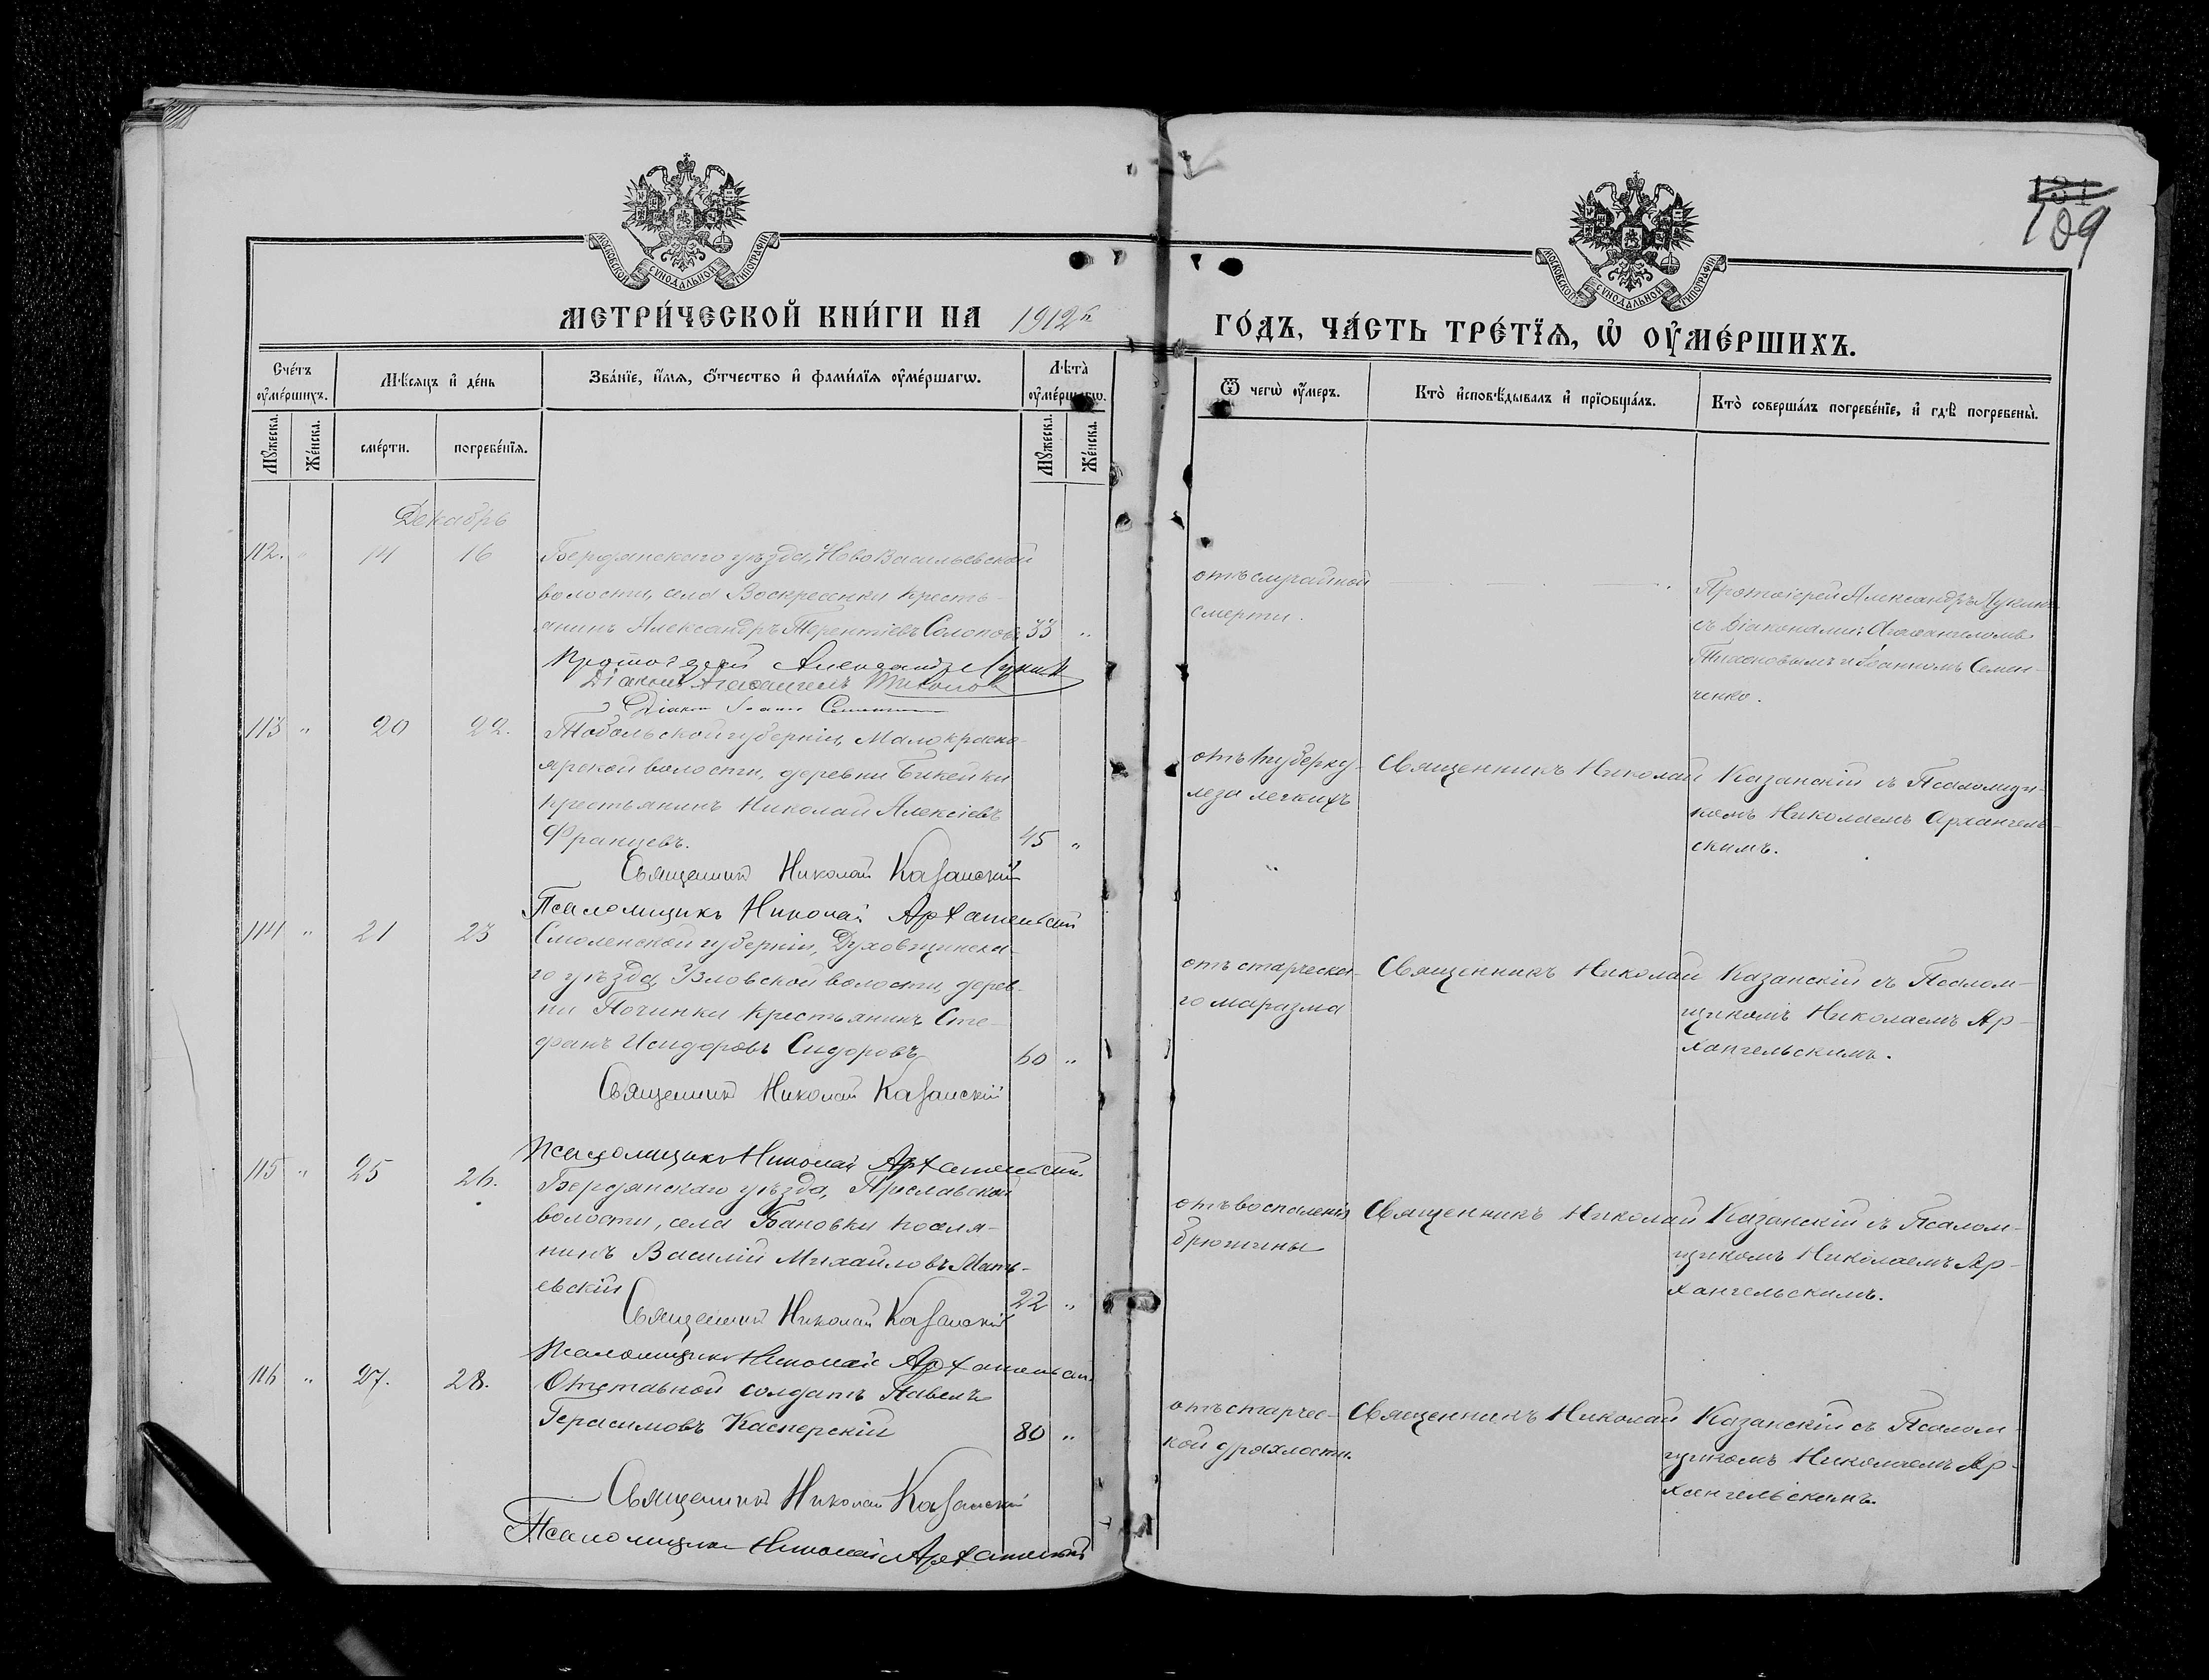 131
109
МОСКОВСКОЙ СѴНОДАЛЬНОЙ ТИПОГРАФІИ
МОСКОВСКОЙ СѴНОДАЛЬНОЙ ТИПОГРАФІИ
МЕТРИ́ЧЕСКОЙ КНИ́ГИ НА 1912 г.
ГО́ДЪ, ЧА́СТЬ ТРЕ́ТЇѦ, Ѡ҆ ОУ҆МЕ́РШИХЪ.
Сче́тъ оу҆ме́ршихъ.
Мѣ́сяцъ и҆ де́нь
Зва́нїе, и҆́мѧ, ѻ҆́тчество и҆ фами́лїѧ оу҆ме́ршагѡ.
Лѣ́та оу҆ме́ршагѡ.
Ѿ чегѡ̀ оу҆́меръ.
Кто̀ и҆сповѣ́дывалъ и҆ прїѡбща́лъ.
Кто̀ соверша́лъ погребе́нїе, и҆ гдѣ̀ погребены̀.
Мꙋ́жеска.
Же́нска.
сме́рти.
погребе́нїѧ.
Мꙋ́жеска.
Же́нска.
Декабрь
112. " 14 16 Бердянскаго уѣзда, Ново Васильевской
волости, села Воскресенки кресть-
янинъ Александръ Терентіевъ Солоповъ 33 "
Протоіерей Александръ Лукинъ
Діаконъ Агаѳангелъ Тихонов
Діакон Іоанн Семенченко
отъ случайной
смерти.
Протоіерей Александръ Лукинъ
съ Діаконами: Агаѳангеломъ
Тихоновымъ и Іоанномъ Семен-
ченко.
113 " 20 22. Тобольской губерніи, Малокрасно-
ярской волости, деревни Бикейки
крестьянинъ Николай Алексіевъ
Францевъ. 45 "
Священникъ Николай Казанскій
Псаломщикъ Николай Архангельскій
отъ туберку-
леза легкихъ
Священникъ Николай Казанскій съ Псаломщи-
комъ Николаемъ Архангель-
скимъ.
114 " 21 23 Смоленской губерніи, Духовщинска-
го уѣзда, волости, дерев-
ни Починки крестьянинъ Сте-
фанъ Исидоровъ Сидоровъ 60 "
Священникъ Николай Казанскій
Псаломщикъ Николай Архангельскій.
отъ старческа-
го маразма
Священникъ Николай Казанскій съ Псалом-
щикомъ Николаемъ Ар-
хангельскимъ.
115 " 25 26. Бердянскаго уѣзда, Преславской
волости, села Бановки поселя-
нинъ Василій Михайловъ
евскій 22 "
Священникъ Николай Казанскій
Псаломщикъ Николай Архангельскій
отъ воспаленія
брюшины
Священникъ Николай Казанскій съ Псалом-
щикомъ Николаемъ Ар-
хангельскимъ.
116 " 27. 28. Отставной солдатъ Павелъ
Герасимовъ Касперскій 80 "
Священникъ Николай Казанскій
Псаломщикъ Николай Архангельскій
отъ старчес-
кой дряхлости.
Священникъ Николай Казанскій съ Псалом-
щикомъ Николаемъ Ар-
хангельскимъ.